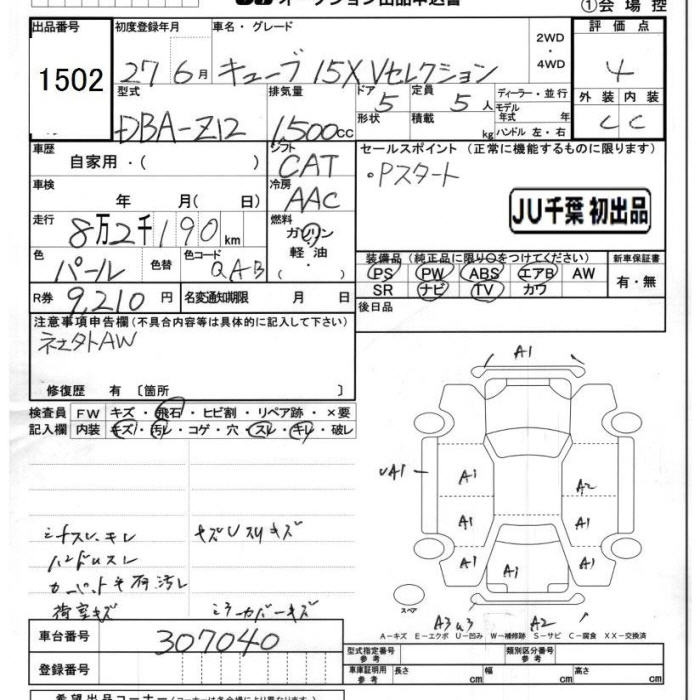 オークション出品申込書
①会場控
出品番号 初度登録年月 車名・グレード 評価点
1502 27 6月 キューブ 15X Vセレクション 2WD・4WD 4
型式 排気量 ドア 5 定員 5人 ディーラー・並行 外装 内装
DBA-Z12 1,500cc 形状 積載 kg モデル年式 年 ハンドル 左・右 C C
車歴 シフト セールスポイント (正常に機能するものに限ります)
自家用・( ) CAT ・Pスタート
車検 冷房
年 月( 日) AAC JU千葉 初出品
走行 燃料
8万2千190km ガソリン
軽油
色 色替 色コード 装備品 (純正品に限り○をつけてください) 新車保証書
パール QAB PS PW ABS エアB AW 有・無
SR ナビ TV カワ
R券 9,210円 名変通知期限 月 日 後日品
注意事項申告欄(不具合内容等は具体的に記入して下さい)
社外AW
修復歴 有 〔箇所 〕
検査員 FW キズ・飛石・ヒビ割・リペア跡・×要
記入欄 内装 キズ・汚レ・コゲ・穴・スレ・キレ・破レ
A1
UA1 A1 A2
A1 A1
A1 A1 A1
シートスレ、キレ キズUスリキズ
ハンドルスレ
カーペット 汚レ
荷室キズ ミラーカバーキズ
スペア
A3 A2
A-キズ E-エクボ U-凹み W-補修跡 S-サビ C-腐食 XX-交換済
車台番号 307040
型式指定番号 参考 類別区分番号 参考
登録番号 車庫証明用 参考 長さ cm 幅 cm 高さ cm
希望出品コーナー